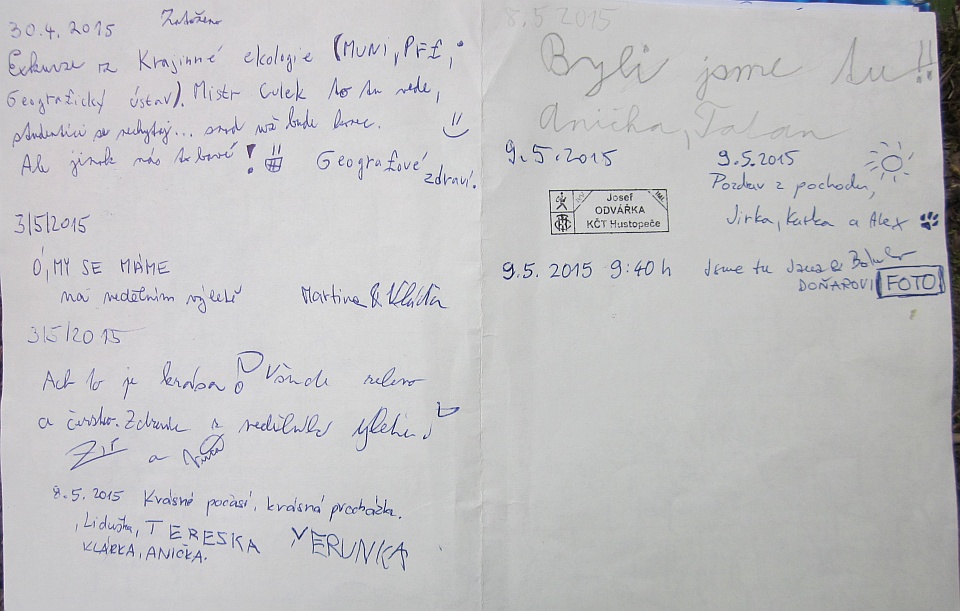 30.4.2015 Založeno
Exkurze z Krajinné ekologie (MUNI, PřF,
Geografický ústav). Mistr Culek to tu vede,
studentíci se nechytaj... snad už bude konec.
Ale jinak nás to baví!
Geografové zdraví.
3/5/2015
Ó, MY SE MÁME
na nedělním výletě Martina & Vláďa
3/5/2015
Ach to je krása! Všude zeleno
a čerstvo. Zdravíme z nedělního
a
8.5.2015 Krásné počasí, krásná procházka.
Liduška, TERESKA VERUNKA
KLÁRKA, ANIČKA.
8.5.2015
Byli jsme tu!!
Anička,
9.5.2015
Josef
ODVÁRKA
KČT Hustopeče
9.5.2015
Pozdrav z pochodu,
Jirka, Katka a Alex
9.5.2015 9:40h Jsme tu Jana &
DOŇAROVI FOTO